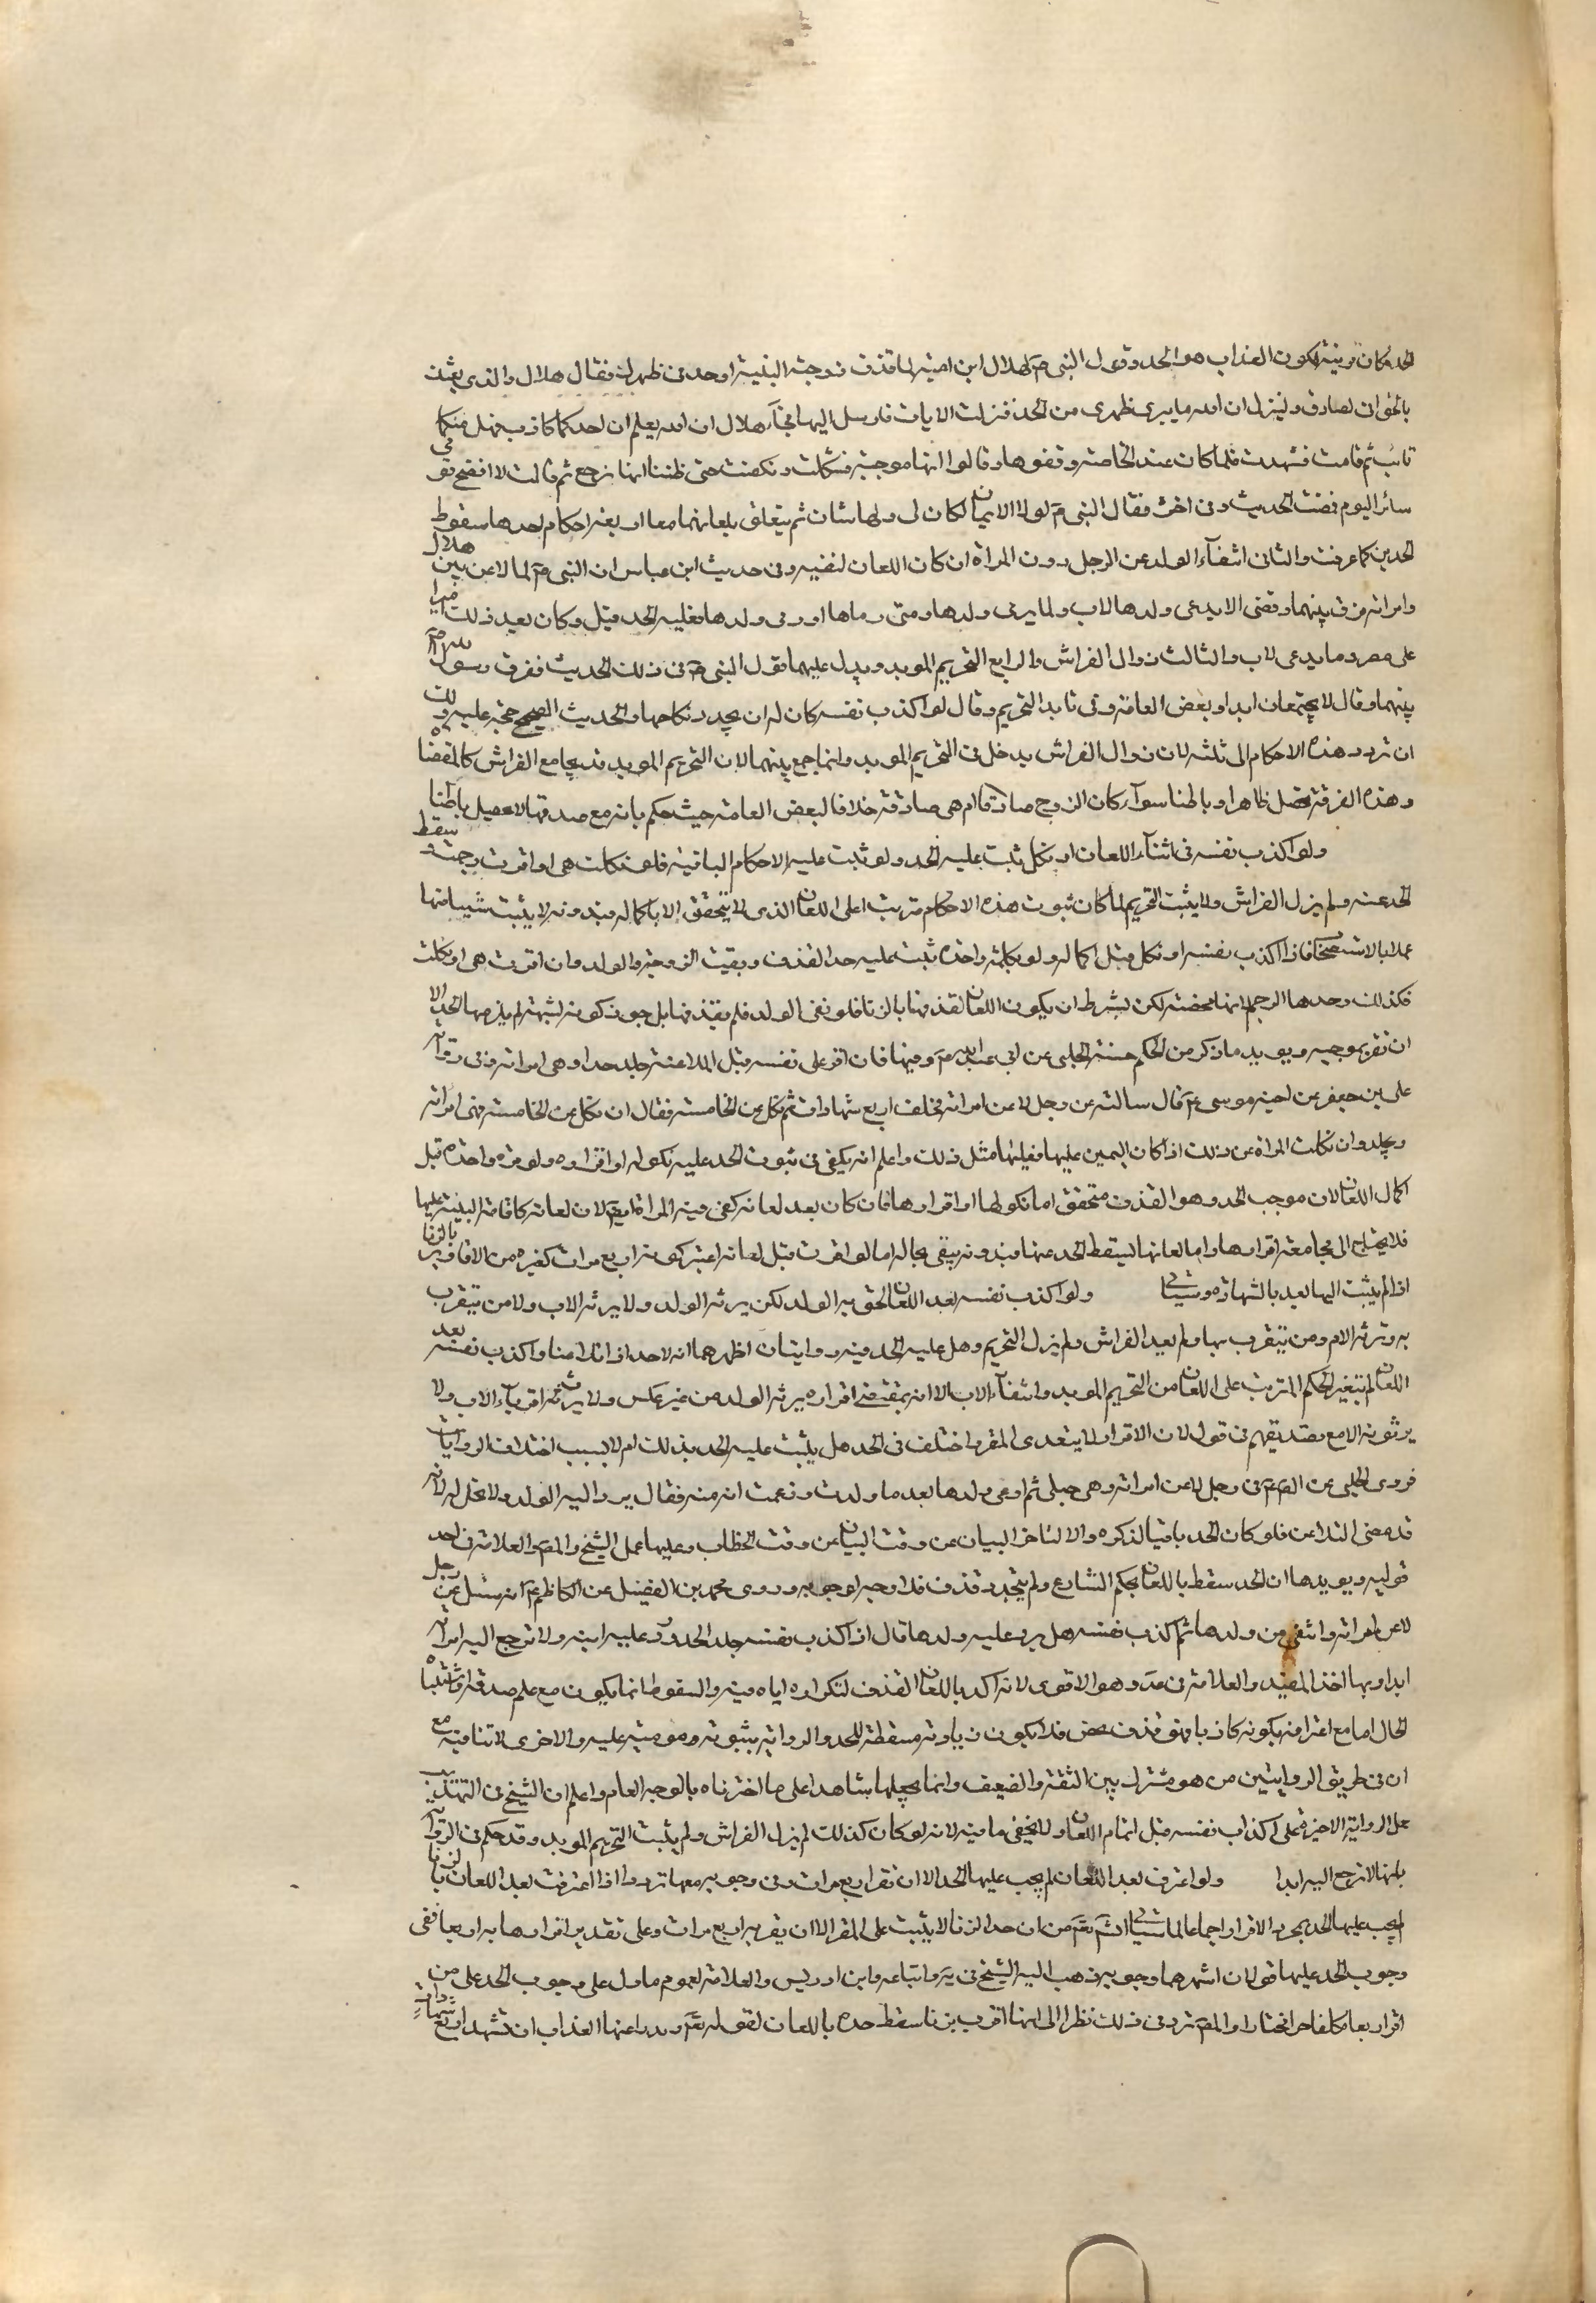 الحد فكان قرينة لكون العذاب هو الحد وقول النبي ص لهلال ابن امية لما قذف زوجته البينة او حد في ظهرك فقال هلال والذي بعثك
بالحق اني لصادق ولينزلن الله ما يبرئ ظهري من الحد فنزلت الايات فارسل اليها فجآء هلال ان الله يعلم ان احدكما كاذب فهل منكما
تائب ثم قامت فشهدت فلما كان عند الخامسة وقفوها وقالوا انها موجبة فتلكأت ونكصت حتى ظننا انها ترجع ثم قالت لا افضح قومي
سائر اليوم فمضت الحديث وفي اخره فقال النبي ص لولا الايمان لكان لي ولها شان ثم يتعلق بلعانهما معا اربعة احكام احدها سقوط
الحدين كما عرفت والثاني انتفآء الولد عن الرجل دون المراة ان كان اللعان لنفيه وفي حديث ابن عباس ان النبي ص لما لاعن بين هلال
وامراته فرق بينهما وقضى الا يدعى ولدها لاب ولا يرمى ولدها ومن رماها او رمى ولدها فعليه الحد قيل وكان بعد ذلك اميرا
على مصر وما يدعى لاب والثالث زوال الفراش والرابع التحريم المؤبد ويدل عليهما قول النبي ص في ذلك الحديث ففرق رسول الله ص
بينهما وقال لا يجتمعان ابدا وبعض العامة وفى تابد التحريم وقال لو اكذب نفسه كان له ان يجدد نكاحها والحديث الصحيح حجة عليه ولك
ان ترد هذه الاحكام الى ثلثة لان زوال الفراش يدخل في التحريم المؤبد وانما جمع بينهما لان التحريم المؤبد قد يجامع الفراش كالمفضاة
وهذه الفرقة تحصل ظاهرا وباطنا سوآء كان الزوج صادقا ام هي صادقة خلافا لبعض العامة حيث حكم بانه مع صدقها لا تحصل باطنا
ولو اكذب نفسه في اثنآء اللعان او نكل ثبت عليه الحد ولم تثبت عليه الاحكام الباقية فلو نكلت هي او اقرت رجمت وسقط
الحد عنه ولم يزل الفراش ولا يثبت التحريم لما كان ثبوت هذه الاحكام مترتبا على اللعان الذي لا يتحقق الا باكماله فبدونه لا يثبت شيئا منها
عملا بالاستصحاب فاذا اكذب نفسه او نكل قبل اكماله ولو بكلمة واحدة ثبت عليه حد القذف وبقيت الزوجية والولد وان اقرت هي او نكلت
فكذلك وحدها الرجم لانها محصنة لكن بشرط ان يكون اللعان لقذفها بالزنا فلو نفى الولد فلم يقذفها بل جوز كونه لشبهة لم يلزمها الحد الا
ان تقر بموجبه ويؤيد ما ذكر من الحكم حسنة الحلبي عن ابي عبد الله ع وفيها فان اقر على نفسه قبل الملاعنة جلد حدا وهي امراته وفي رواية
علي بن جعفر عن اخيه موسى ع قال سالته عن رجل لاعن امراته فحلف اربع شهادات ثم نكل عن الخامسة فقال ان نكل عن الخامسة فهي امراته
ويجلد وان نكلت المراة عن ذلك اذا كان اليمين عليها فعليها مثل ذلك واعلم انه يكفي في ثبوت الحد عليه نكوله او اقراره ولو مرة واحدة قبل
اكمال اللعان لان موجب الحد وهو القذف متحقق اما نكولها او اقرارها فان كان بعد لعانه كفى فيه المرة ايضا لان لعانه كاقامة البينة عليها
فلا يحتاج الى مجامعة اقرارها وانما لعانها ليسقط الحد عنها فبدونه يبقى بحاله اما لو اقرت قبل لعانه اعتبر كونه اربع مرات كغيره من الاقارير بالزنا
اذا لم يثبت اليها بعد بالشهادة وسياتي ولو اكذب نفسه بعد اللعان لحق به الولد لكن يرثه الولد ولا يرثه الاب ولا من يتقرب
به وترثه الام ومن يتقرب بها ولم يعد الفراش ولم يزل التحريم وهل عليه الحد فيه روايتان اظهرهما انه لا حد اذا تلاعنا واكذب نفسه بعد
اللعان لم يتغير الحكم المترتب على اللعان من التحريم المؤبد وانتفآء الاب الا انه بمقتضى اقراره يرثه الولد من غير عكس ولا يرث اقربآء الاب ولا
يرثونه الا مع تصديقهم في قول لان الاقرار لا يتعدى المقر واختلف في الحد هل يثبت عليه الحد بذلك ام لا بسبب اختلاف الروايات
فروى الحلبي عن الص ع في رجل لاعن امراته وهي حبلى ثم ادعى ولدها بعد ما ولدت وزعمت انه منه فقال يرد اليه الولد ولا تحل له لانه
قد مضى التلاعن فلو كان الحد باقيا لذكره والا لتاخر البيان عن وقت البيان عن وقت الخطاب وعليها عمل الشيخ والمص والعلامة في احد
قوليه ويؤيدها ان الحد سقط باللعان بحكم الشارع ولم يتجدد قذف فلا وجه لوجوبه وروى محمد بن الفضيل عن الكاظم ع انه سئل عن رجل
لاعن امراته وانتفى من ولدها ثم اكذب نفسه هل يرد عليه ولدها قال اذا كذب نفسه جلد الحد ورد عليه ابنه ولا ترجع اليه امراته
ابدا وبها اخذ المفيد والعلامة في عد وهو الاقوى لانه اكد باللعان القذف لتكراره اياه فيه والسقوط انما يكون مع علم صدقه او اشتباه
الحال اما مع اعترافه بكونه كاذبا فهو قذف محض فلا يكون زيادته مسقطة للحد والرواية بثبوته مومية عليه والاخرى لا تنافيه مع
ان في طريق الروايتين من هو مشترك بين الثقة والضعيف وانما نجعلها شاهدا على ما اخترناه بالوجه العام واعلم ان الشيخ في التهذيب
حمل الرواية الاخيرة على اكذاب نفسه قبل اتمام اللعان ولا يخفى ما فيه لانه لو كان كذلك لم يزل الفراش ولم يثبت التحريم المؤبد وقد حكم في الرواية
بانها لا ترجع اليه ابدا ولو اعترفت بعد اللعان لم يجب عليها الحد الا ان تقر اربع مرات وفي وجوبه معها تردد اذا اعترفت بعد اللعان بالزنا
لم يجب عليها الحد بمجرد الاقرار اجماعا لما سياتي انش تع من ان حد الزنا لا يثبت على المقر الا ان يقر به اربع مرات وعلى تقدير اقرارها به اربعا ففي
وجوب الحد عليها قولان اشهرهما وجوبه ذهب اليه الشيخ في ية واتباعه وابن ادريس والعلامة لعموم ما دل على وجوب الحد على من
اقر اربعا مكلفا حرا مختارا والمص تردد في ذلك نظرا الى انها اقرت بزنا سقط حده باللعان لقوله تع ويدرا عنها العذاب ان تشهد اربع شهادات